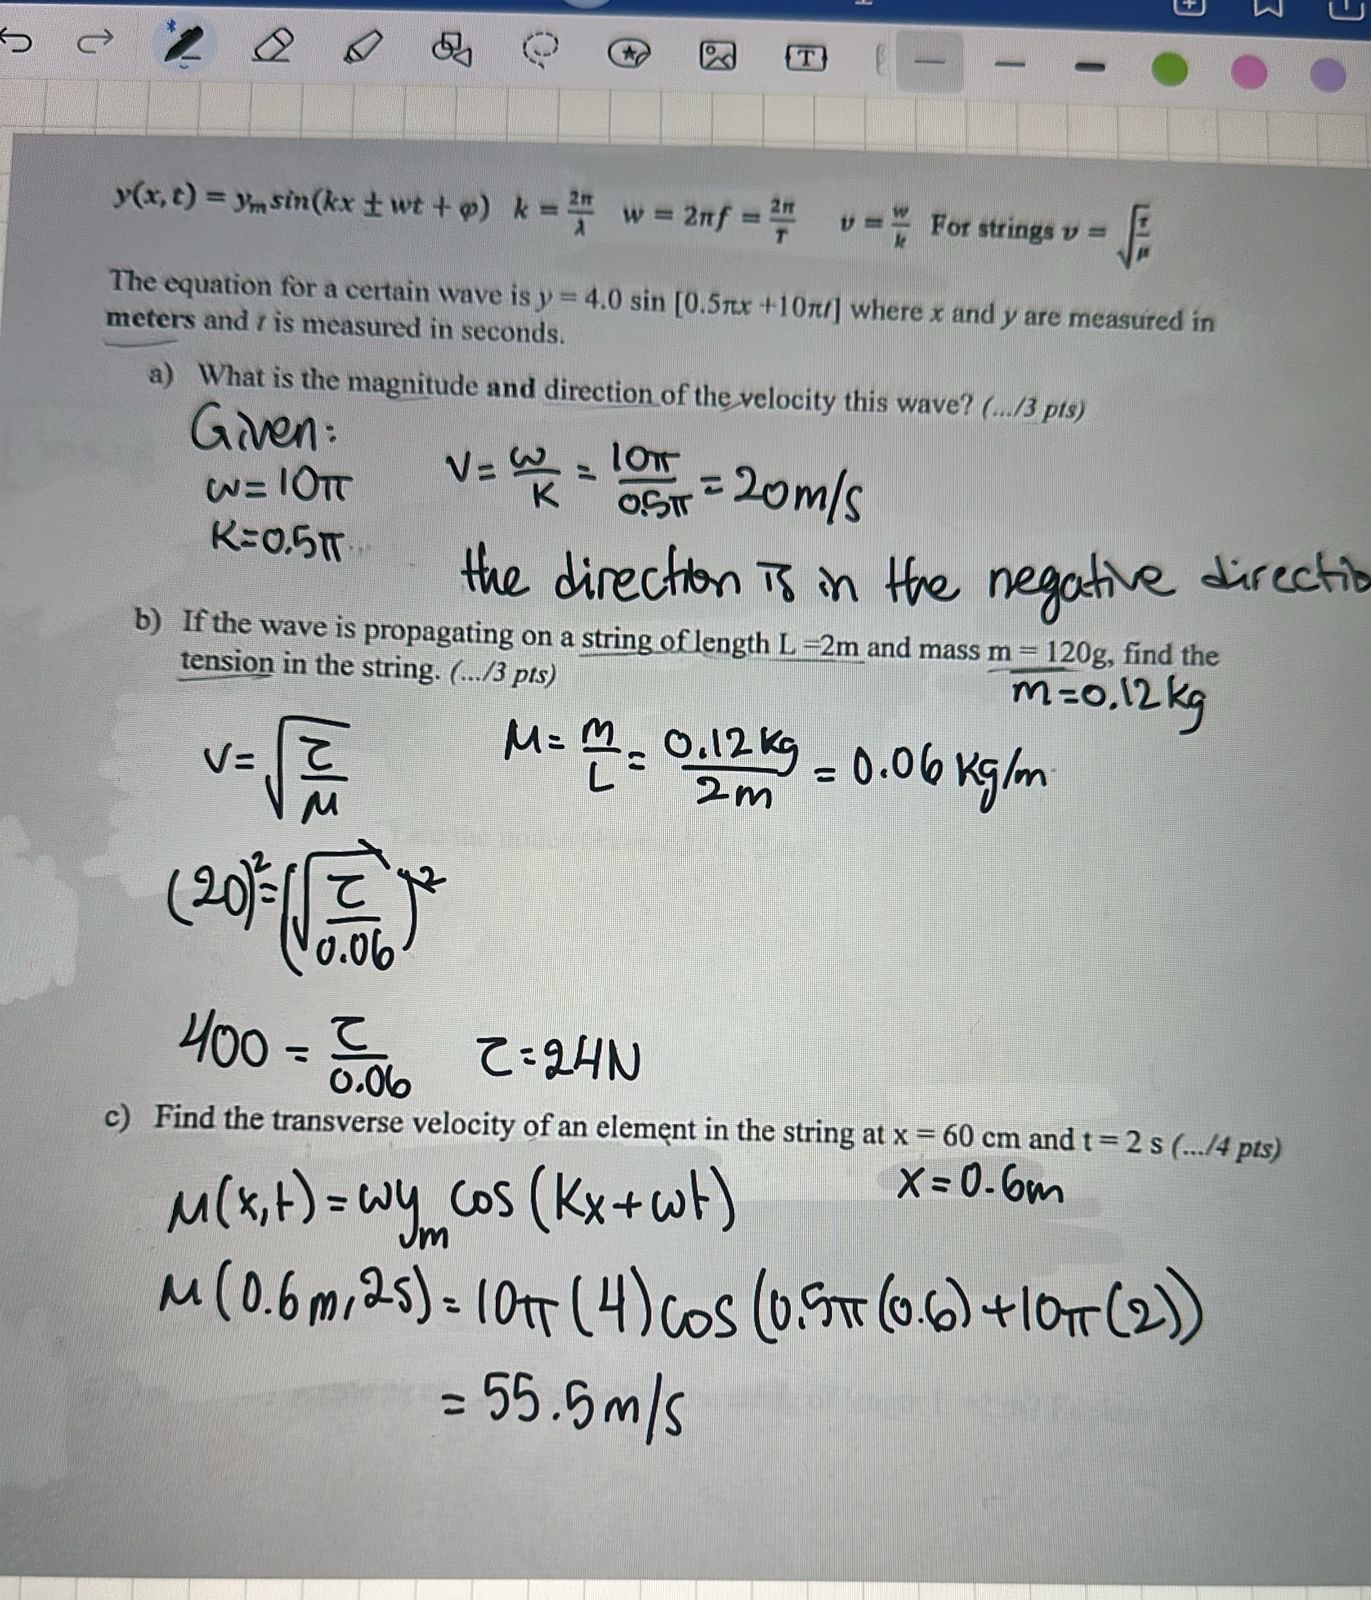 y(x, t) = yₘ sin(kx ± wt + φ) k = 2π/λ w = 2πf = 2π/T v = w/k For strings v = √(τ/μ)
The equation for a certain wave is y = 4.0 sin [0.5πx +10πt] where x and y are measured in
meters and t is measured in seconds.
a) What is the magnitude and direction of the velocity this wave? (.../3 pts)
Given:
ω = 10π
K=0.5π
V = ω/K = 10π/0.5π = 20m/s
the direction is in the negative directio
b) If the wave is propagating on a string of length L =2m and mass m = 120g, find the
tension in the string. (.../3 pts)
m=0.12kg
V=√(τ/μ) μ= m/L = 0.12kg/2m = 0.06 kg/m
(20)²=(√(τ/0.06))²
400 = τ/0.06 τ=24N
c) Find the transverse velocity of an element in the string at x = 60 cm and t = 2 s (.../4 pts)
μ(x,t)=ωyₘ cos (Kx+ωt) x=0.6m
μ(0.6m,2s)=10π(4)cos (0.5π(0.6)+10π(2))
= 55.5m/s